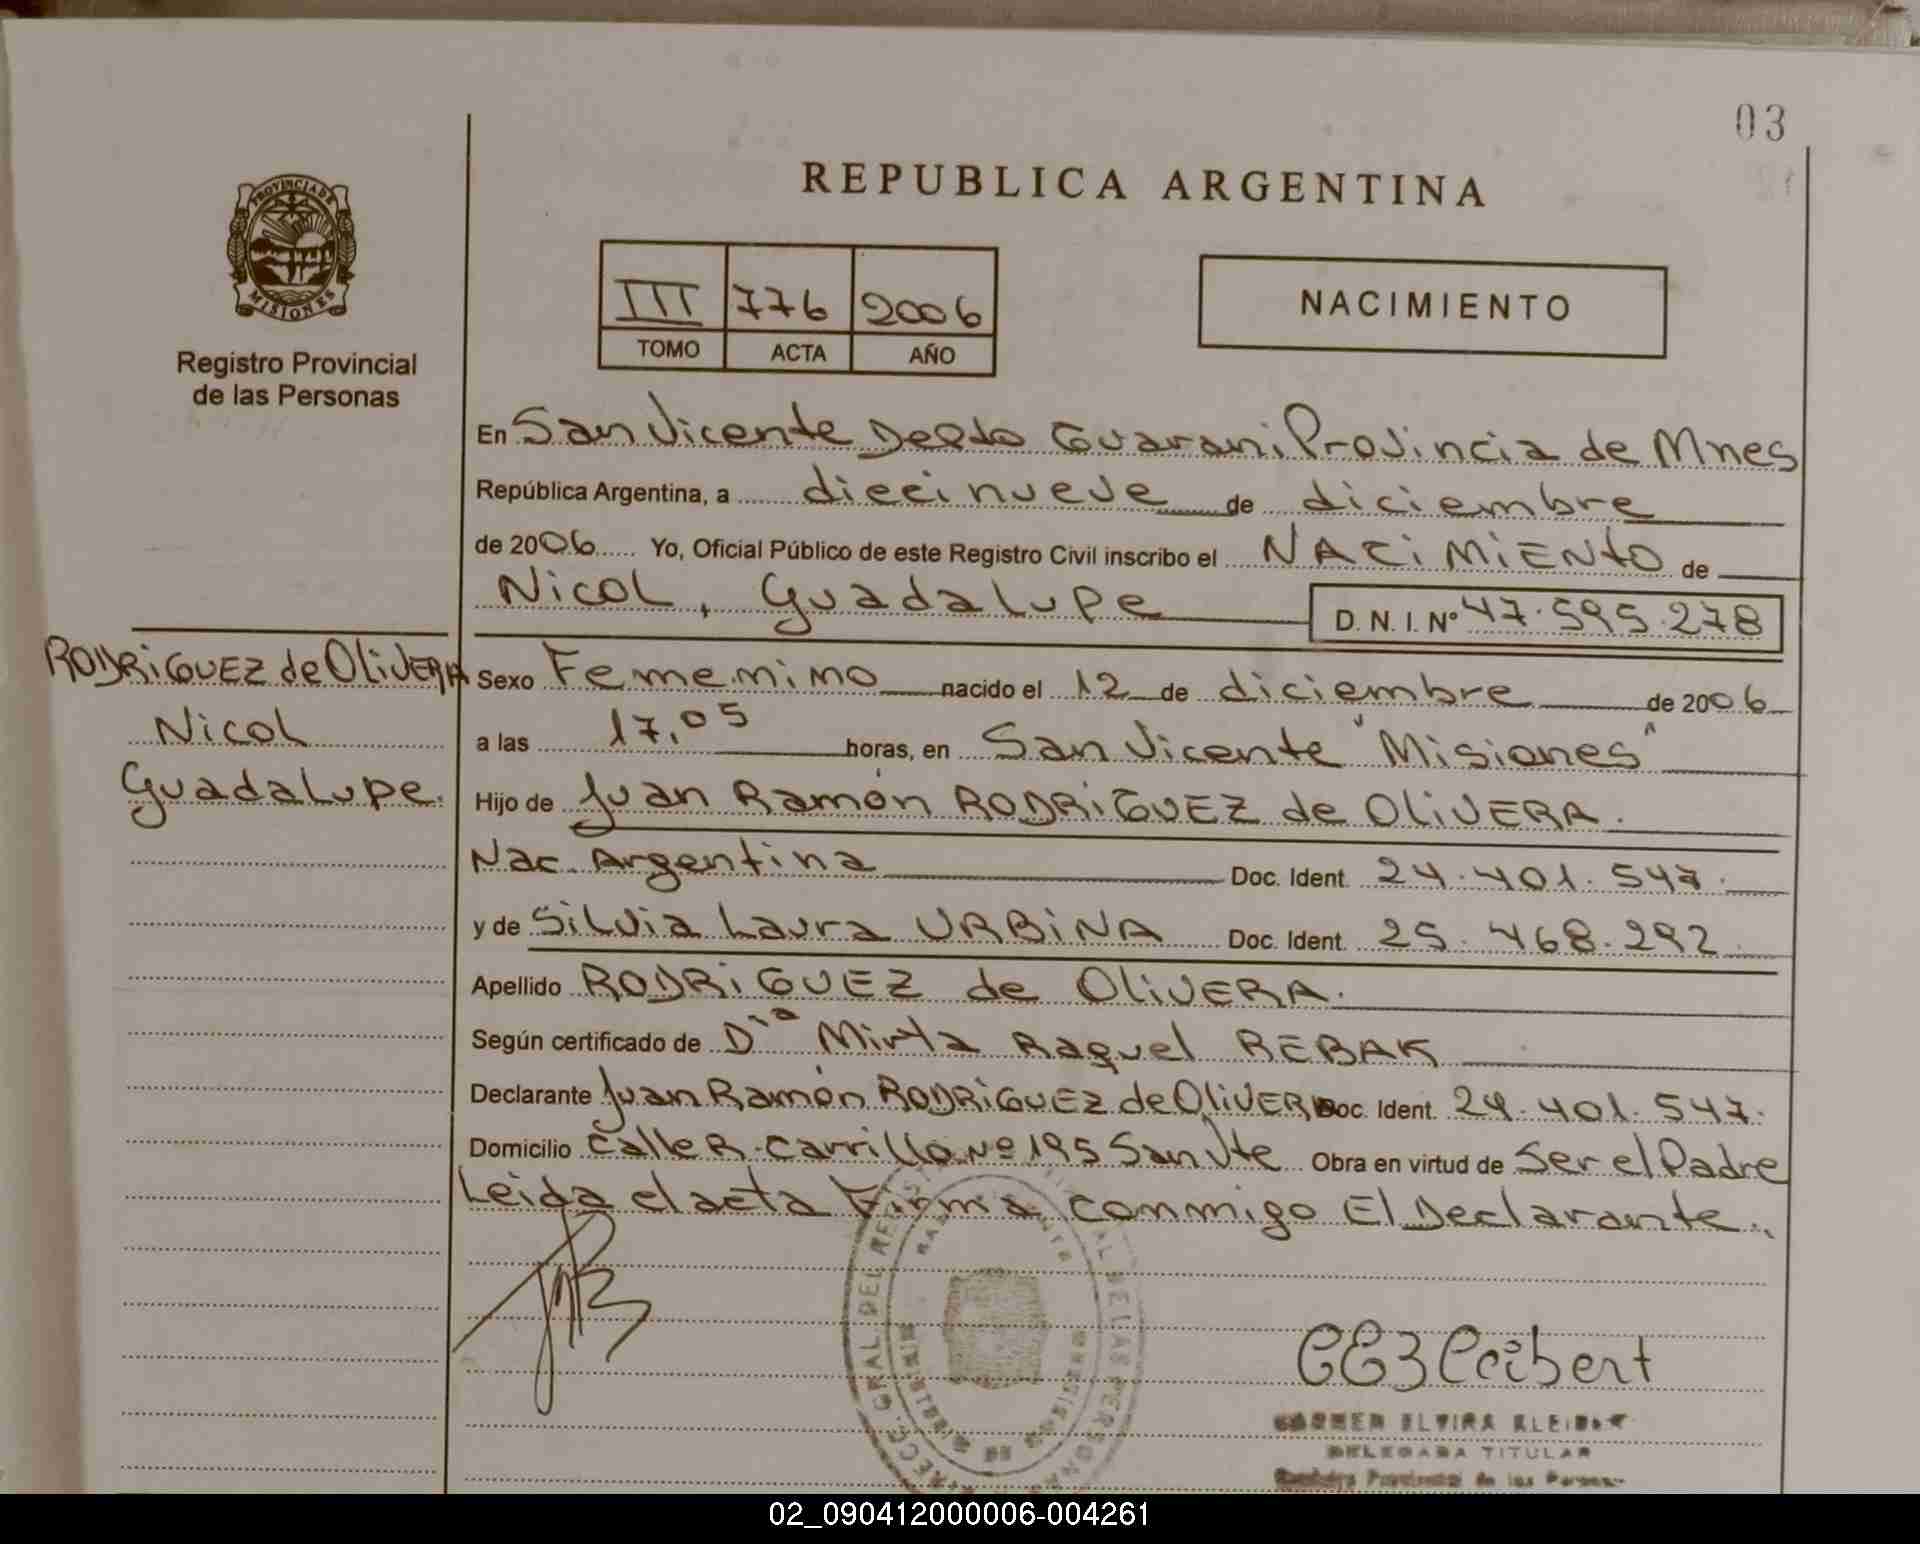 03
REPUBLICA ARGENTINA
PROVINCIA DE
MISIONES
Registro Provincial
de las Personas
III 776 2006
TOMO ACTA AÑO
NACIMIENTO
En San Vicente Depto Guarani Provincia de Mnes
República Argentina, a diecinueve de diciembre
de 2006 Yo, Oficial Público de este Registro Civil inscribo el NACIMIENTO de
Nicol, Guadalupe D. N. I. Nº 47.595.278
RODRIGUEZ de OLIVERA
Nicol
Guadalupe.
Sexo Femenino nacido el 12 de diciembre de 2006
a las 17,05 horas, en San Vicente "Misiones"
Hijo de Juan Ramón RODRIGUEZ de OLIVERA.
Nac. Argentina Doc. Ident. 24.401.547.
y de Silvia Laura URBINA Doc. Ident. 25.468.292
Apellido RODRIGUEZ de OLIVERA.
Según certificado de Dra Mirta Raquel REBAK
Declarante Juan Ramón RODRIGUEZ de OLIVERA Doc. Ident. 24.401.547.
Domicilio Calle R. Carrillo Nº 195 San Vte Obra en virtud de Ser el Padre
Leida el acta Firma conmigo El Declarante.
CARMEN ELVIRA KLEIBERT
DELEGADA TITULAR
Provincial de las Personas
02_090412000006-004261